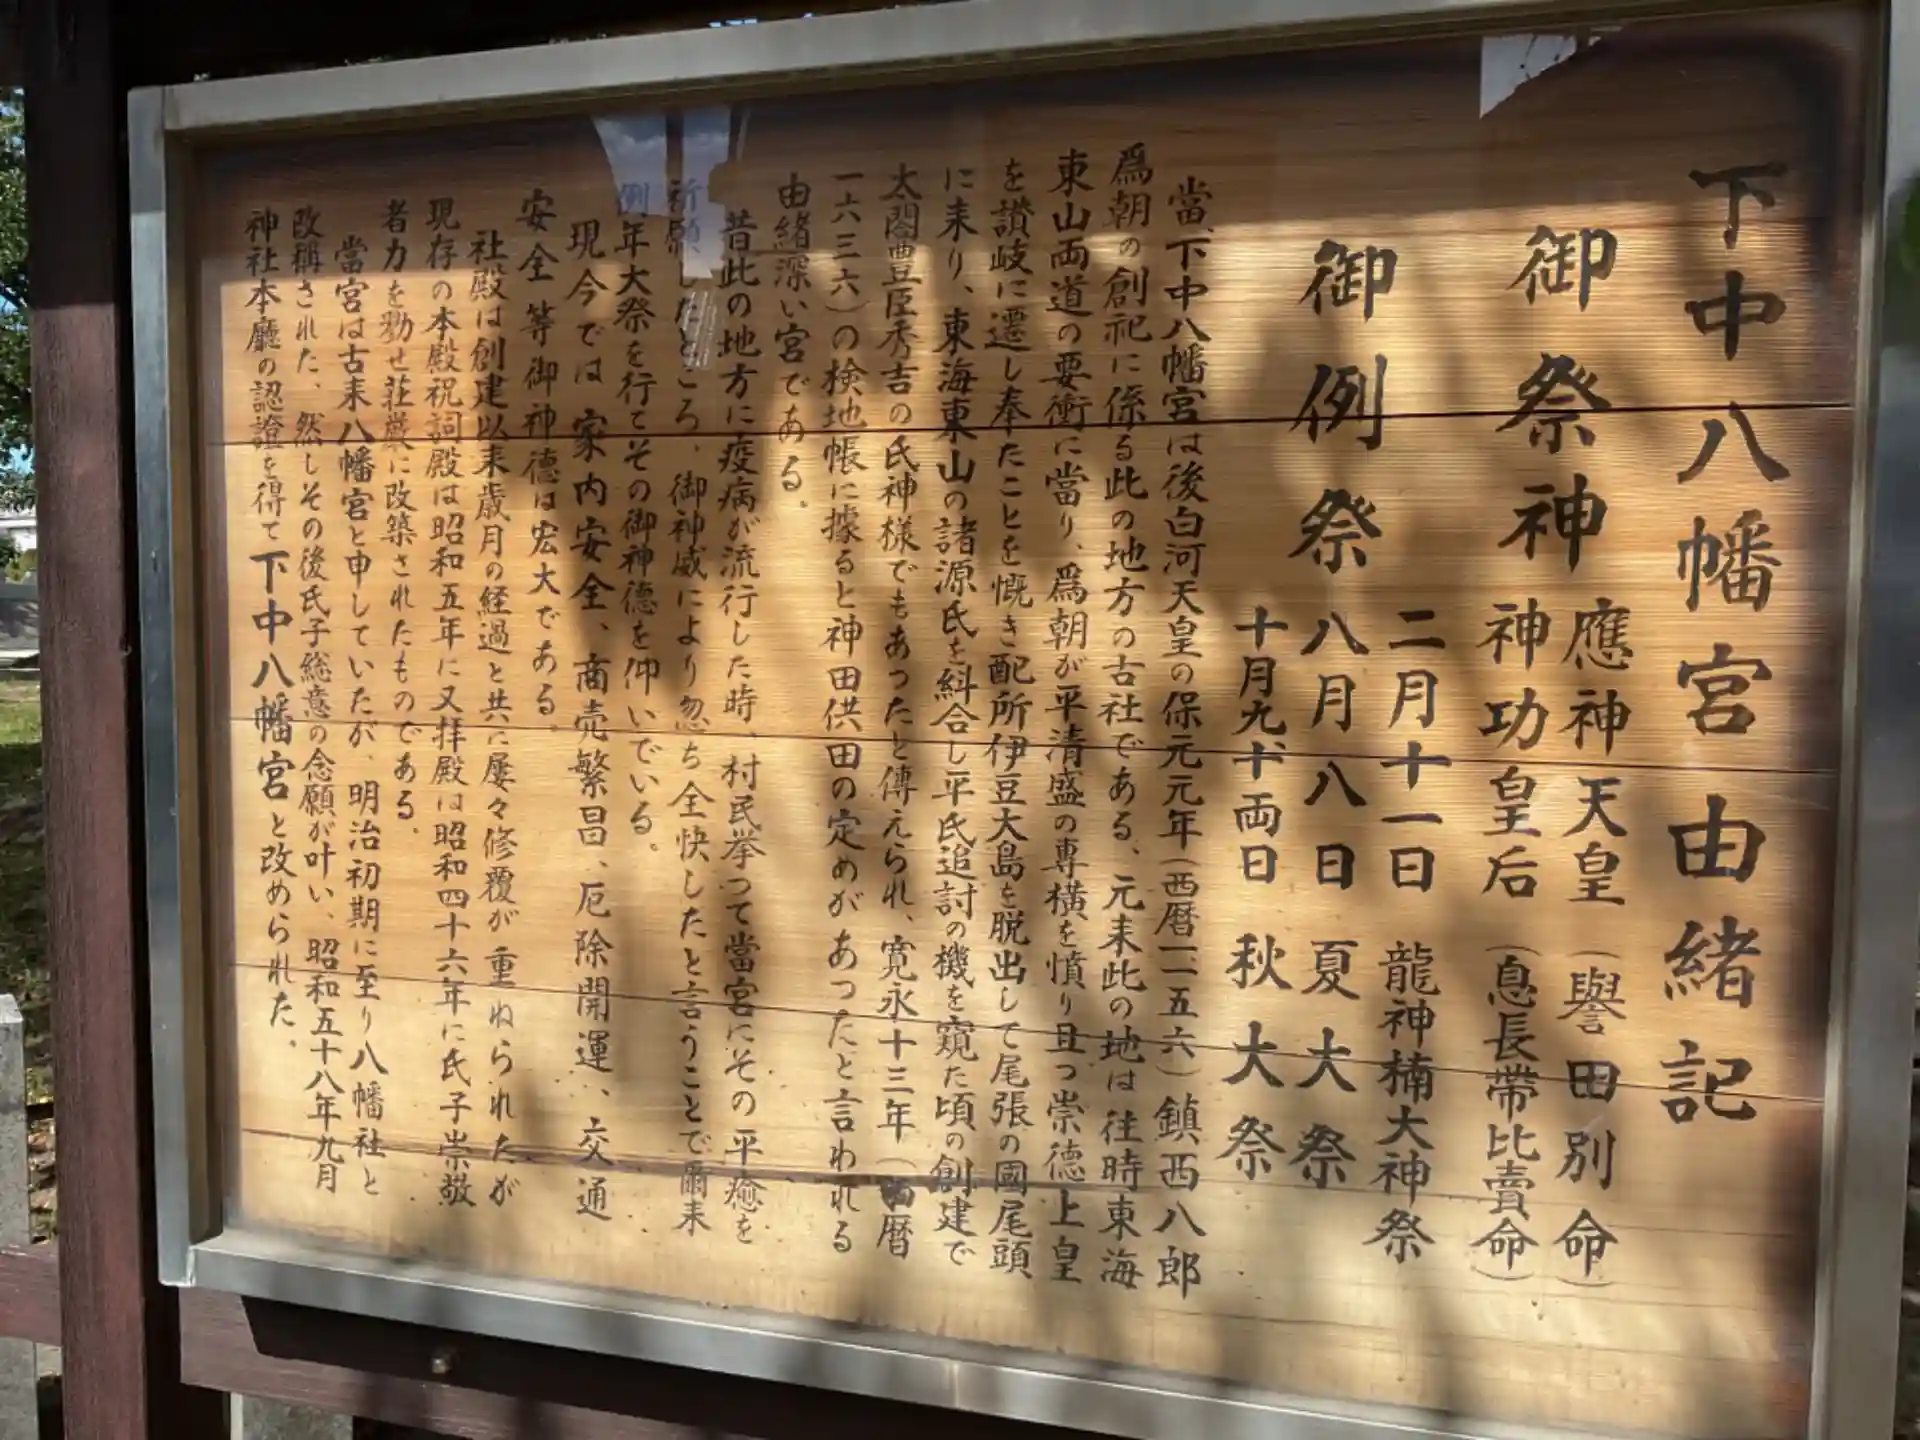 下中八幡宮由緒記
御祭神
應神天皇（譽田別命）
神功皇后（息長帶比賣命）
御例祭
二月十一日 龍神楠大神祭
八月八日 夏大祭
十月九、十両日 秋大祭
當、下中八幡宮は後白河天皇の保元元年（西暦一一五六）鎮西八郎
爲朝の創祀に係る此の地方の古社である、元来此の地は往時東海
東山両道の要衝に當り、爲朝が平清盛の専横を憤り且つ崇徳上皇
を讃岐に遷し奉たことを慨き配所伊豆大島を脱出して尾張の國尾頭
に来り、東海東山の諸源氏を糾合し平氏追討の機を窺た頃の創建で
太閤豊臣秀吉の氏神様でもあつたと傳えられ、寛永十三年（西暦
一六三六）の検地帳に據ると神田供田の定めがあつたと言われる
由緒深い宮である。
昔此の地方に疫病が流行した時、村民挙つて當宮にその平癒を
祈願したところ、御神威により忽ち全快したと言うことで爾来
例年大祭を行てその御神徳を仰いでいる。
現今では家内安全、商売繁昌、厄除開運、交通
安全等御神徳は宏大である。
社殿は創建以来歳月の経過と共に屡々修覆が重ねられたが
現存の本殿祝詞殿は昭和五年に又拝殿は昭和四十六年に氏子崇敬
者力を勠せ荘厳に改築されたものである。
當宮は古来八幡宮と申していたが、明治初期に至り八幡社と
改稱された、然しその後氏子総意の念願が叶い、昭和五十八年九月
神社本廳の認證を得て下中八幡宮と改められた。